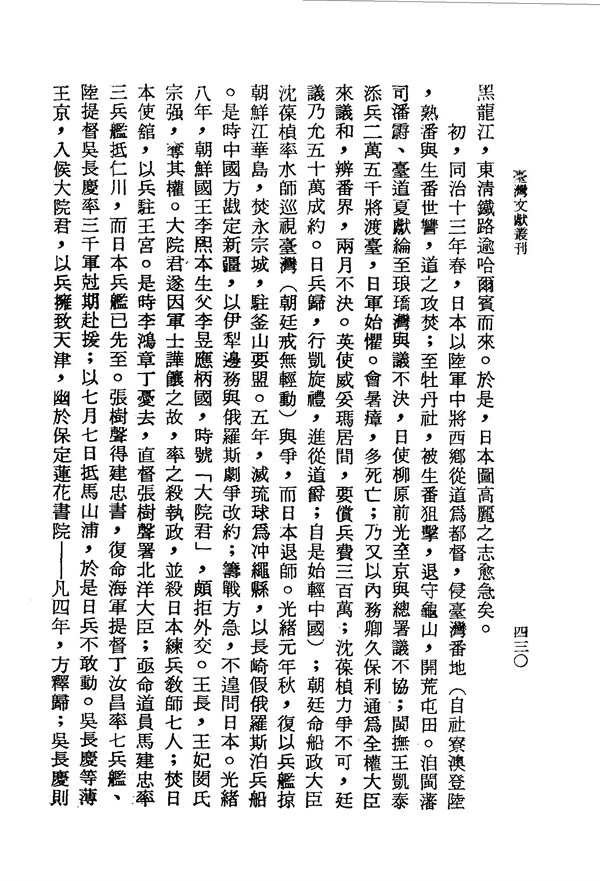 臺灣文獻叢刊
四三〇
黑龍江，東清鐵路逾哈爾賓而來。於是，日本圖高麗之志愈急矣。
初，同治十三年春，日本以陸軍中將西鄉從道爲都督，侵臺灣番地（自社寮澳登陸
，熟番與生番世讐，道之攻焚；至牡丹社，被生番狙擊，退守龜山，開荒屯田。洎閩藩
司潘霨、臺道夏獻綸至琅璚灣與議不決，日使柳原前光至京與總署議不協；閩撫王凱泰
添兵二萬五千將渡臺，日軍始懼。會暑瘴，多死亡；乃又以內務卿久保利通爲全權大臣
來議和，辨番界，兩月不決。英使威妥瑪居間，要償兵費三百萬；沈葆楨力爭不可，廷
議乃允五十萬成約。日兵歸，行凱旋禮，進從道爵；自是始輕中國）；朝廷命船政大臣
沈葆楨率水師巡視臺灣（朝廷戒無輕動）與爭，而日本退師。光緒元年秋，復以兵艦掠
朝鮮江華島，焚永宗城，駐釜山要盟。五年，滅琉球爲冲繩縣，以長崎假俄羅斯泊兵船
。是時中國方戡定新疆，以伊犁邊務與俄羅斯劇爭改約；籌戰方急，不遑問日本。光緒
八年，朝鮮國王李熙本生父李昱應柄國，時號「大院君」，頗拒外交。王長，王妃閔氏
宗强，奪其權。大院君遂因軍士譁饟之故，率之殺執政，並殺日本練兵教師七人；焚日
本使舘，以兵駐王宮。是時李鴻章丁憂去，直督張樹聲署北洋大臣；亟命道員馬建忠率
三兵艦抵仁川，而日本兵艦已先至。張樹聲得建忠書，復命海軍提督丁汝昌率七兵艦、
陸提督吳長慶率三千軍尅期赴援；以七月七日抵馬山浦，於是日兵不敢動。吳長慶等薄
王京，入候大院君，以兵擁致天津，幽於保定蓮花書院——凡四年，方釋歸；吳長慶則